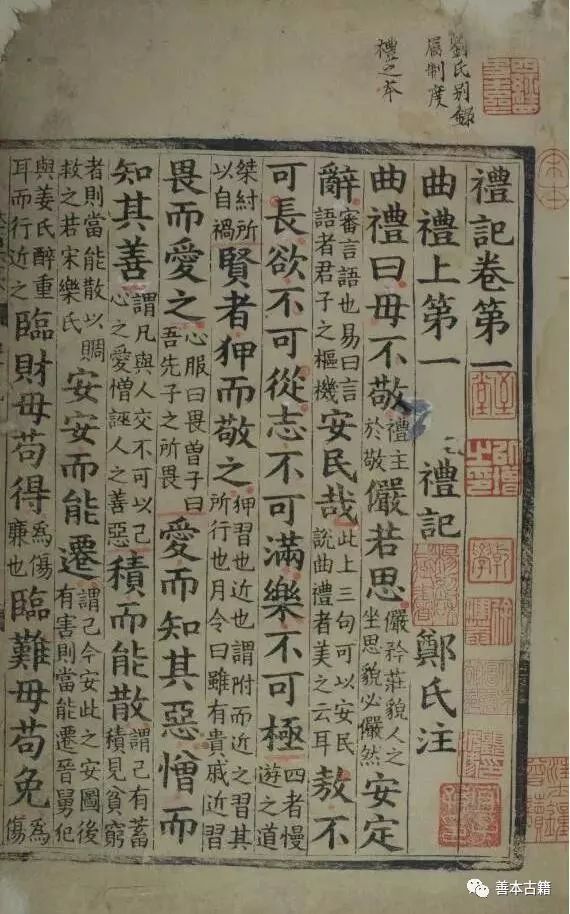 劉氏别錄
屬制度
禮之本
禮記卷第一
曲禮上第一 禮記 鄭氏注
曲禮曰毋不敬禮主於敬儼若思儼矜莊貌人之坐思貌必儼然安定
辭審言語也易曰言語者君子之樞機安民哉此上三句可以安民說曲禮者美之云耳敖不
可長欲不可從志不可滿樂不可極四者慢遊之道
桀紂所以自禍賢者狎而敬之狎習也近也謂附而近之習其所行也月令曰雖有貴戚近習
畏而愛之心服曰畏曽子曰吾先子之所畏愛而知其惡憎而
知其善謂凡與人交不可以己心之愛憎誣人之善惡積而能散謂己有蓄積見貧窮
者則當能散以賙救之若宋樂氏安安而能遷謂己今安此之安圖後有害則當能遷晉舅犯
與姜氏醉重耳而行近之臨財毋苟得為傷廉也臨難毋苟免為傷
善本古籍